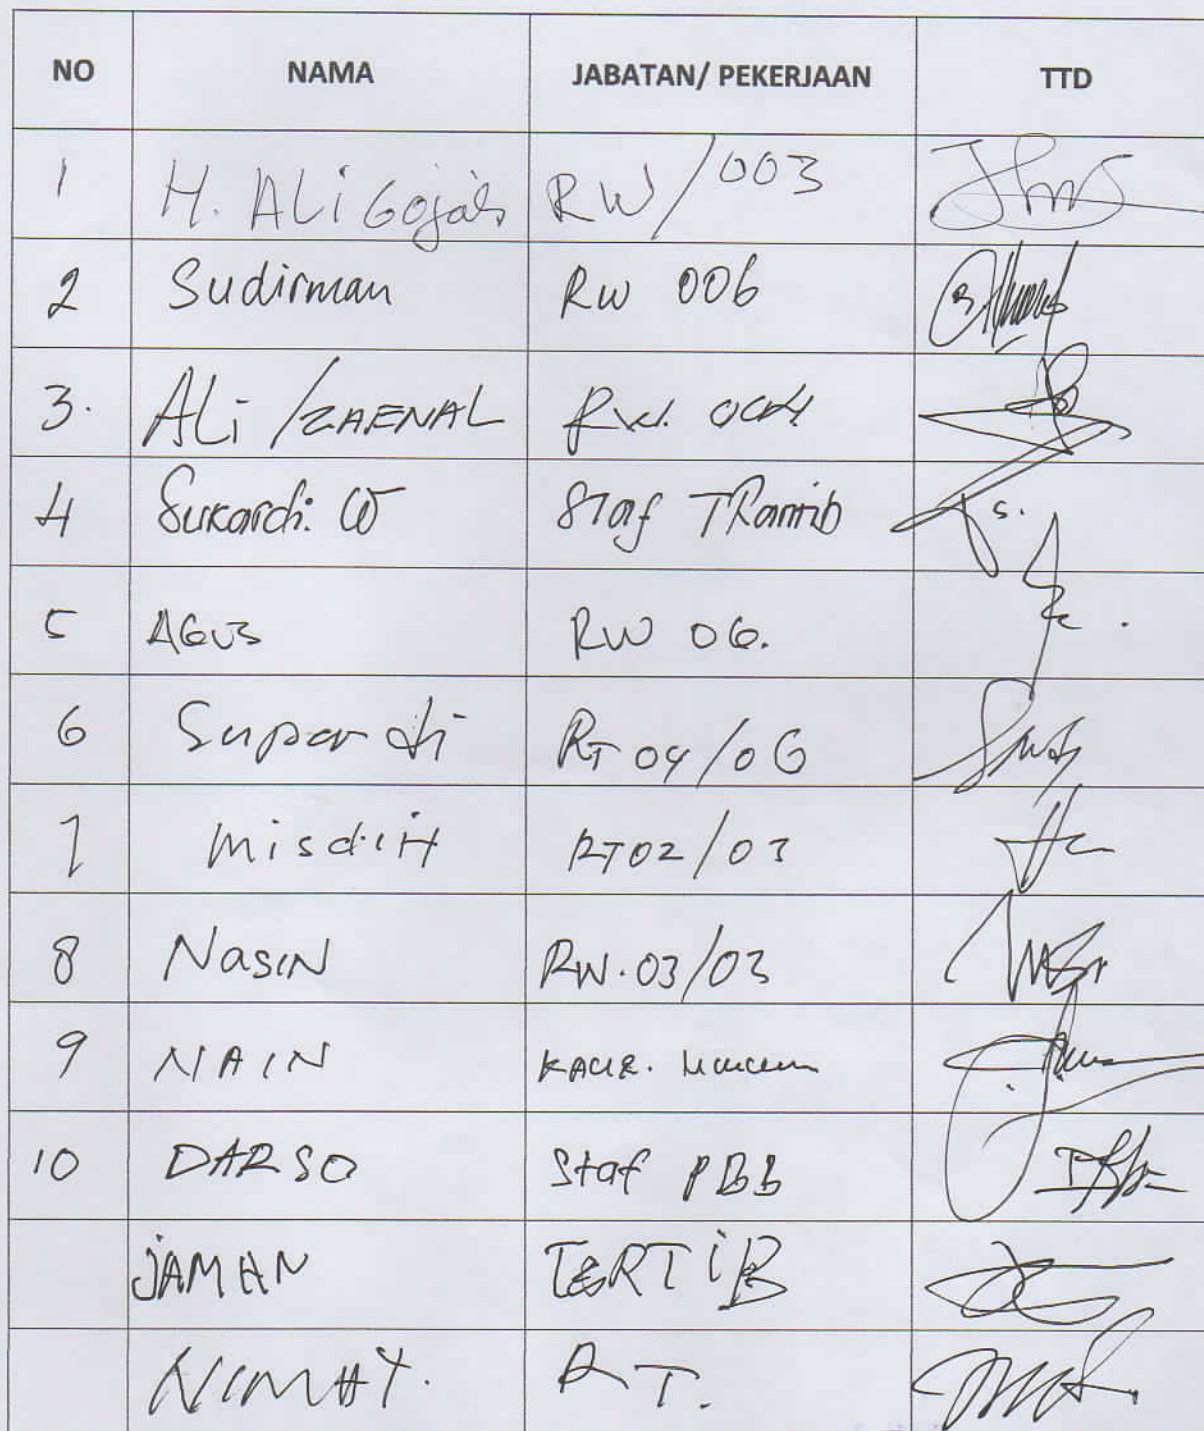 NO NAMA JABATAN/ PEKERJAAN TTD
1 H. ALi Gojali RW/003
2 Sudirman RW 006
3. ALi /ZAENAL RW. 004
4 Sukardi. W Staf TRamtib
5 AGUS RW 06.
6 Supardi RT 04/06
7 Misdi H RT02/03
8 NasiN RW.03/03
9 NAIN KAUR. Umum
10 DARSO Staf PBB
JAMAN TERTiB
NIMAT. RT.